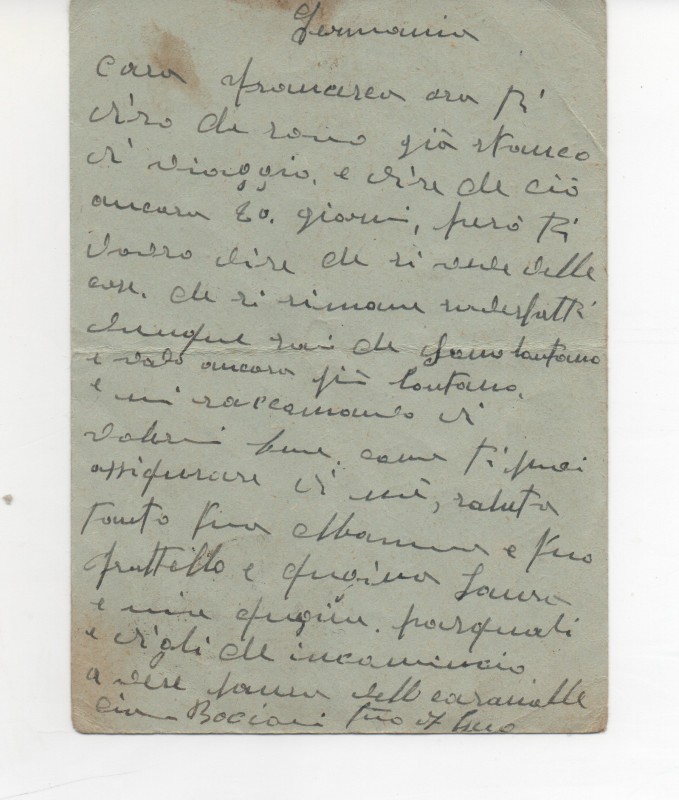 Germania
cara francesca ora ti
dirò che sono già stanco
di viaggio, e dire che ciò
ancora 20. giorni, però ti
vorro dire che si vede delle
cose. che si rimane sodesfatti
dunque sai che sono lontano
e vado ancora più lontano.
e mi raccomando di
volermi bene. come ti puoi
assiqurare di me, saluta
tanto tua Mamma e tuo
frattello e qugina Laura
e mia qugina. pasquali
e digli che incomincio
a dere delle
Bacioni tuo